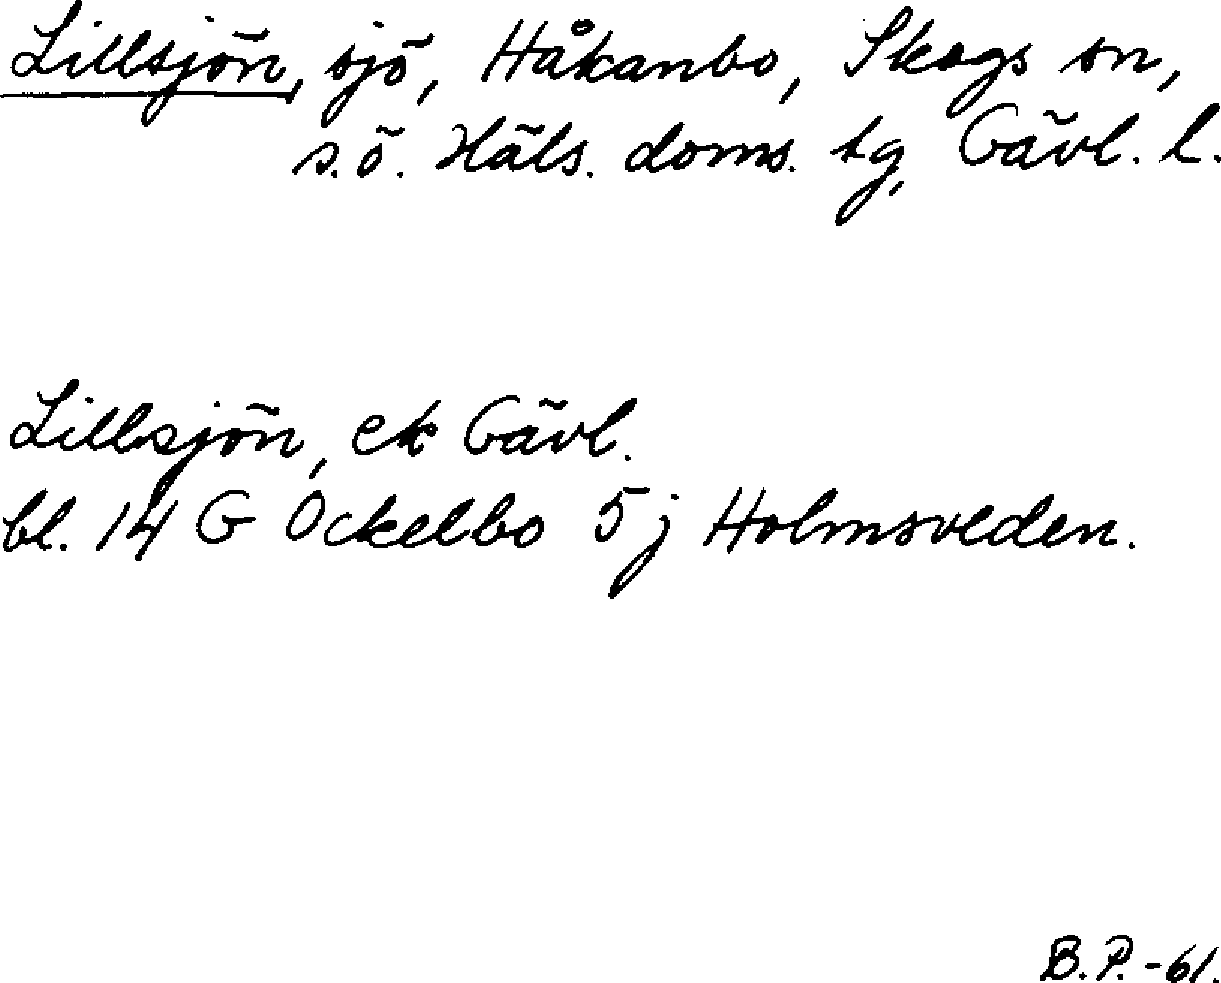 Lillsjön, sjö, Håkanbo, Skogs sn,
s.ö. Häls. doms. tg, Gävl. l.
Lillsjön, ek Gävl.
bl. 14 G Ockelbo 5j Holmsveden.
B.P. -61.